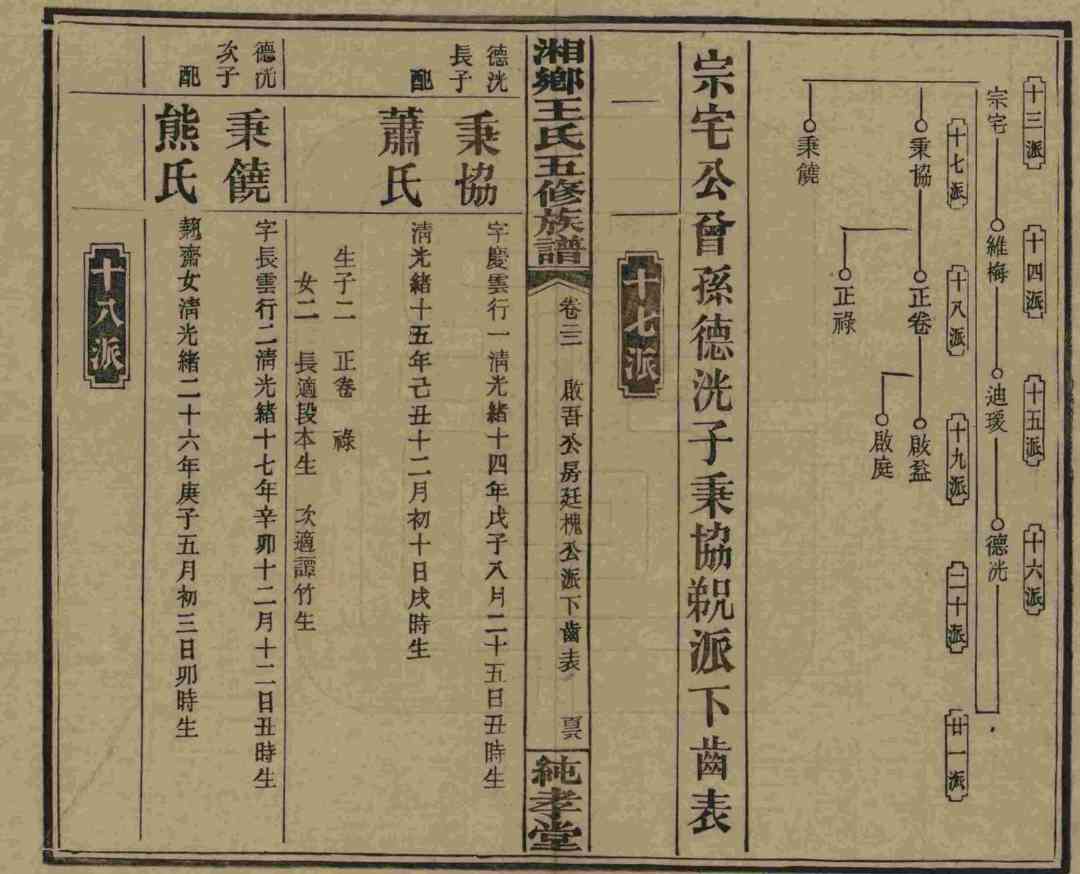 十三派
十四派
十五派
十六派
宗宅
維梅
迪瑷
德洸
十七派
十八派
十九派
二十派
廿一派
秉協
正卷
啟益
啟庭
正祿
秉饒
宗宅公曾孫德洸子秉協
派下齒表
十七派
湘鄉王氏五修族譜
卷三三
啟吾公房廷槐公派下齒表
純孝堂
德洸
長子
秉協
字慶雲行一清光緒十四年戊子八月二十五日丑時生
配
蕭氏
清光緒十五年己丑十二月初十日戌時生
生子二 正卷 祿
女二 長適段本生 次適譚竹生
德洸
次子
秉饒
字長雲行二清光緒十七年辛卯十二月十二日丑時生
配
熊氏
齋女清光緒二十六年庚子五月初三日卯時生
十八派